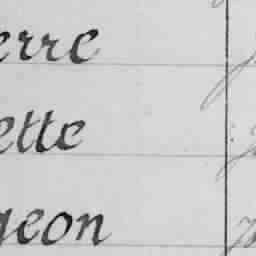 erre
ette
geon